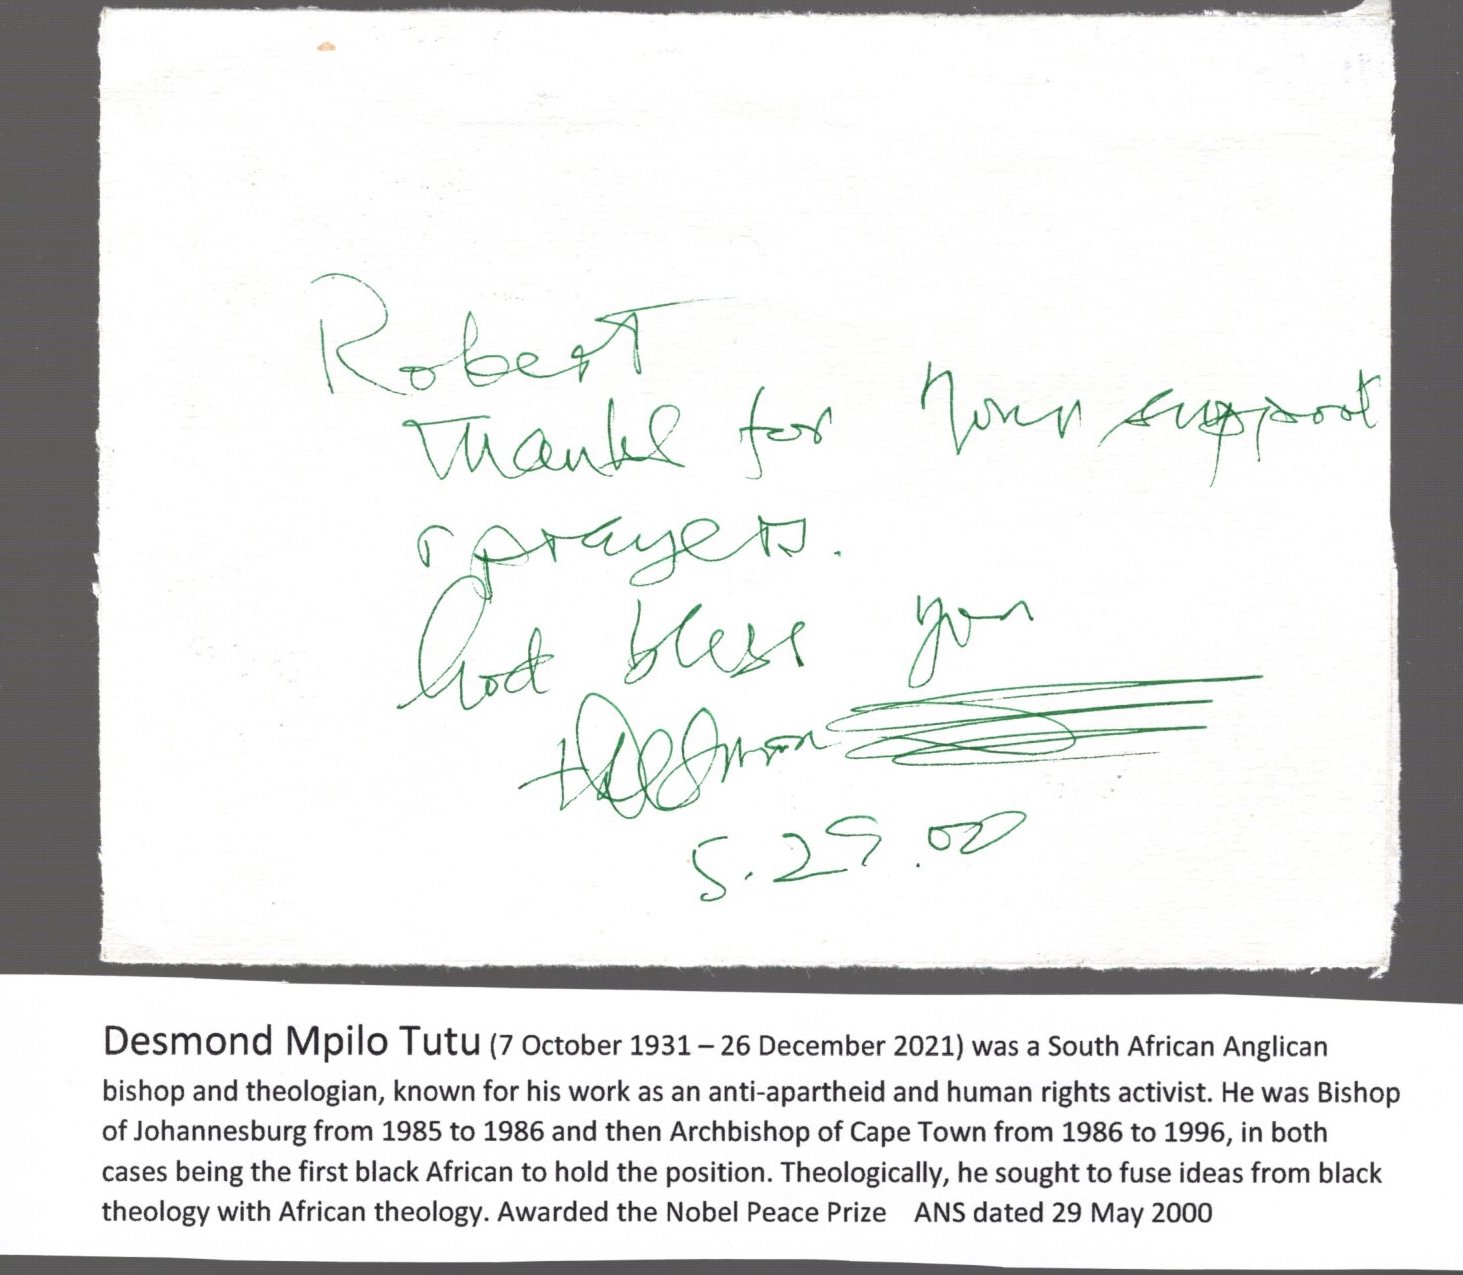 Robert
Thanks for your support
& prayers.
God bless you
+Desmond
5.29.00
Desmond Mpilo Tutu (7 October 1931 – 26 December 2021) was a South African Anglican
bishop and theologian, known for his work as an anti-apartheid and human rights activist. He was Bishop
of Johannesburg from 1985 to 1986 and then Archbishop of Cape Town from 1986 to 1996, in both
cases being the first black African to hold the position. Theologically, he sought to fuse ideas from black
theology with African theology. Awarded the Nobel Peace Prize ANS dated 29 May 2000